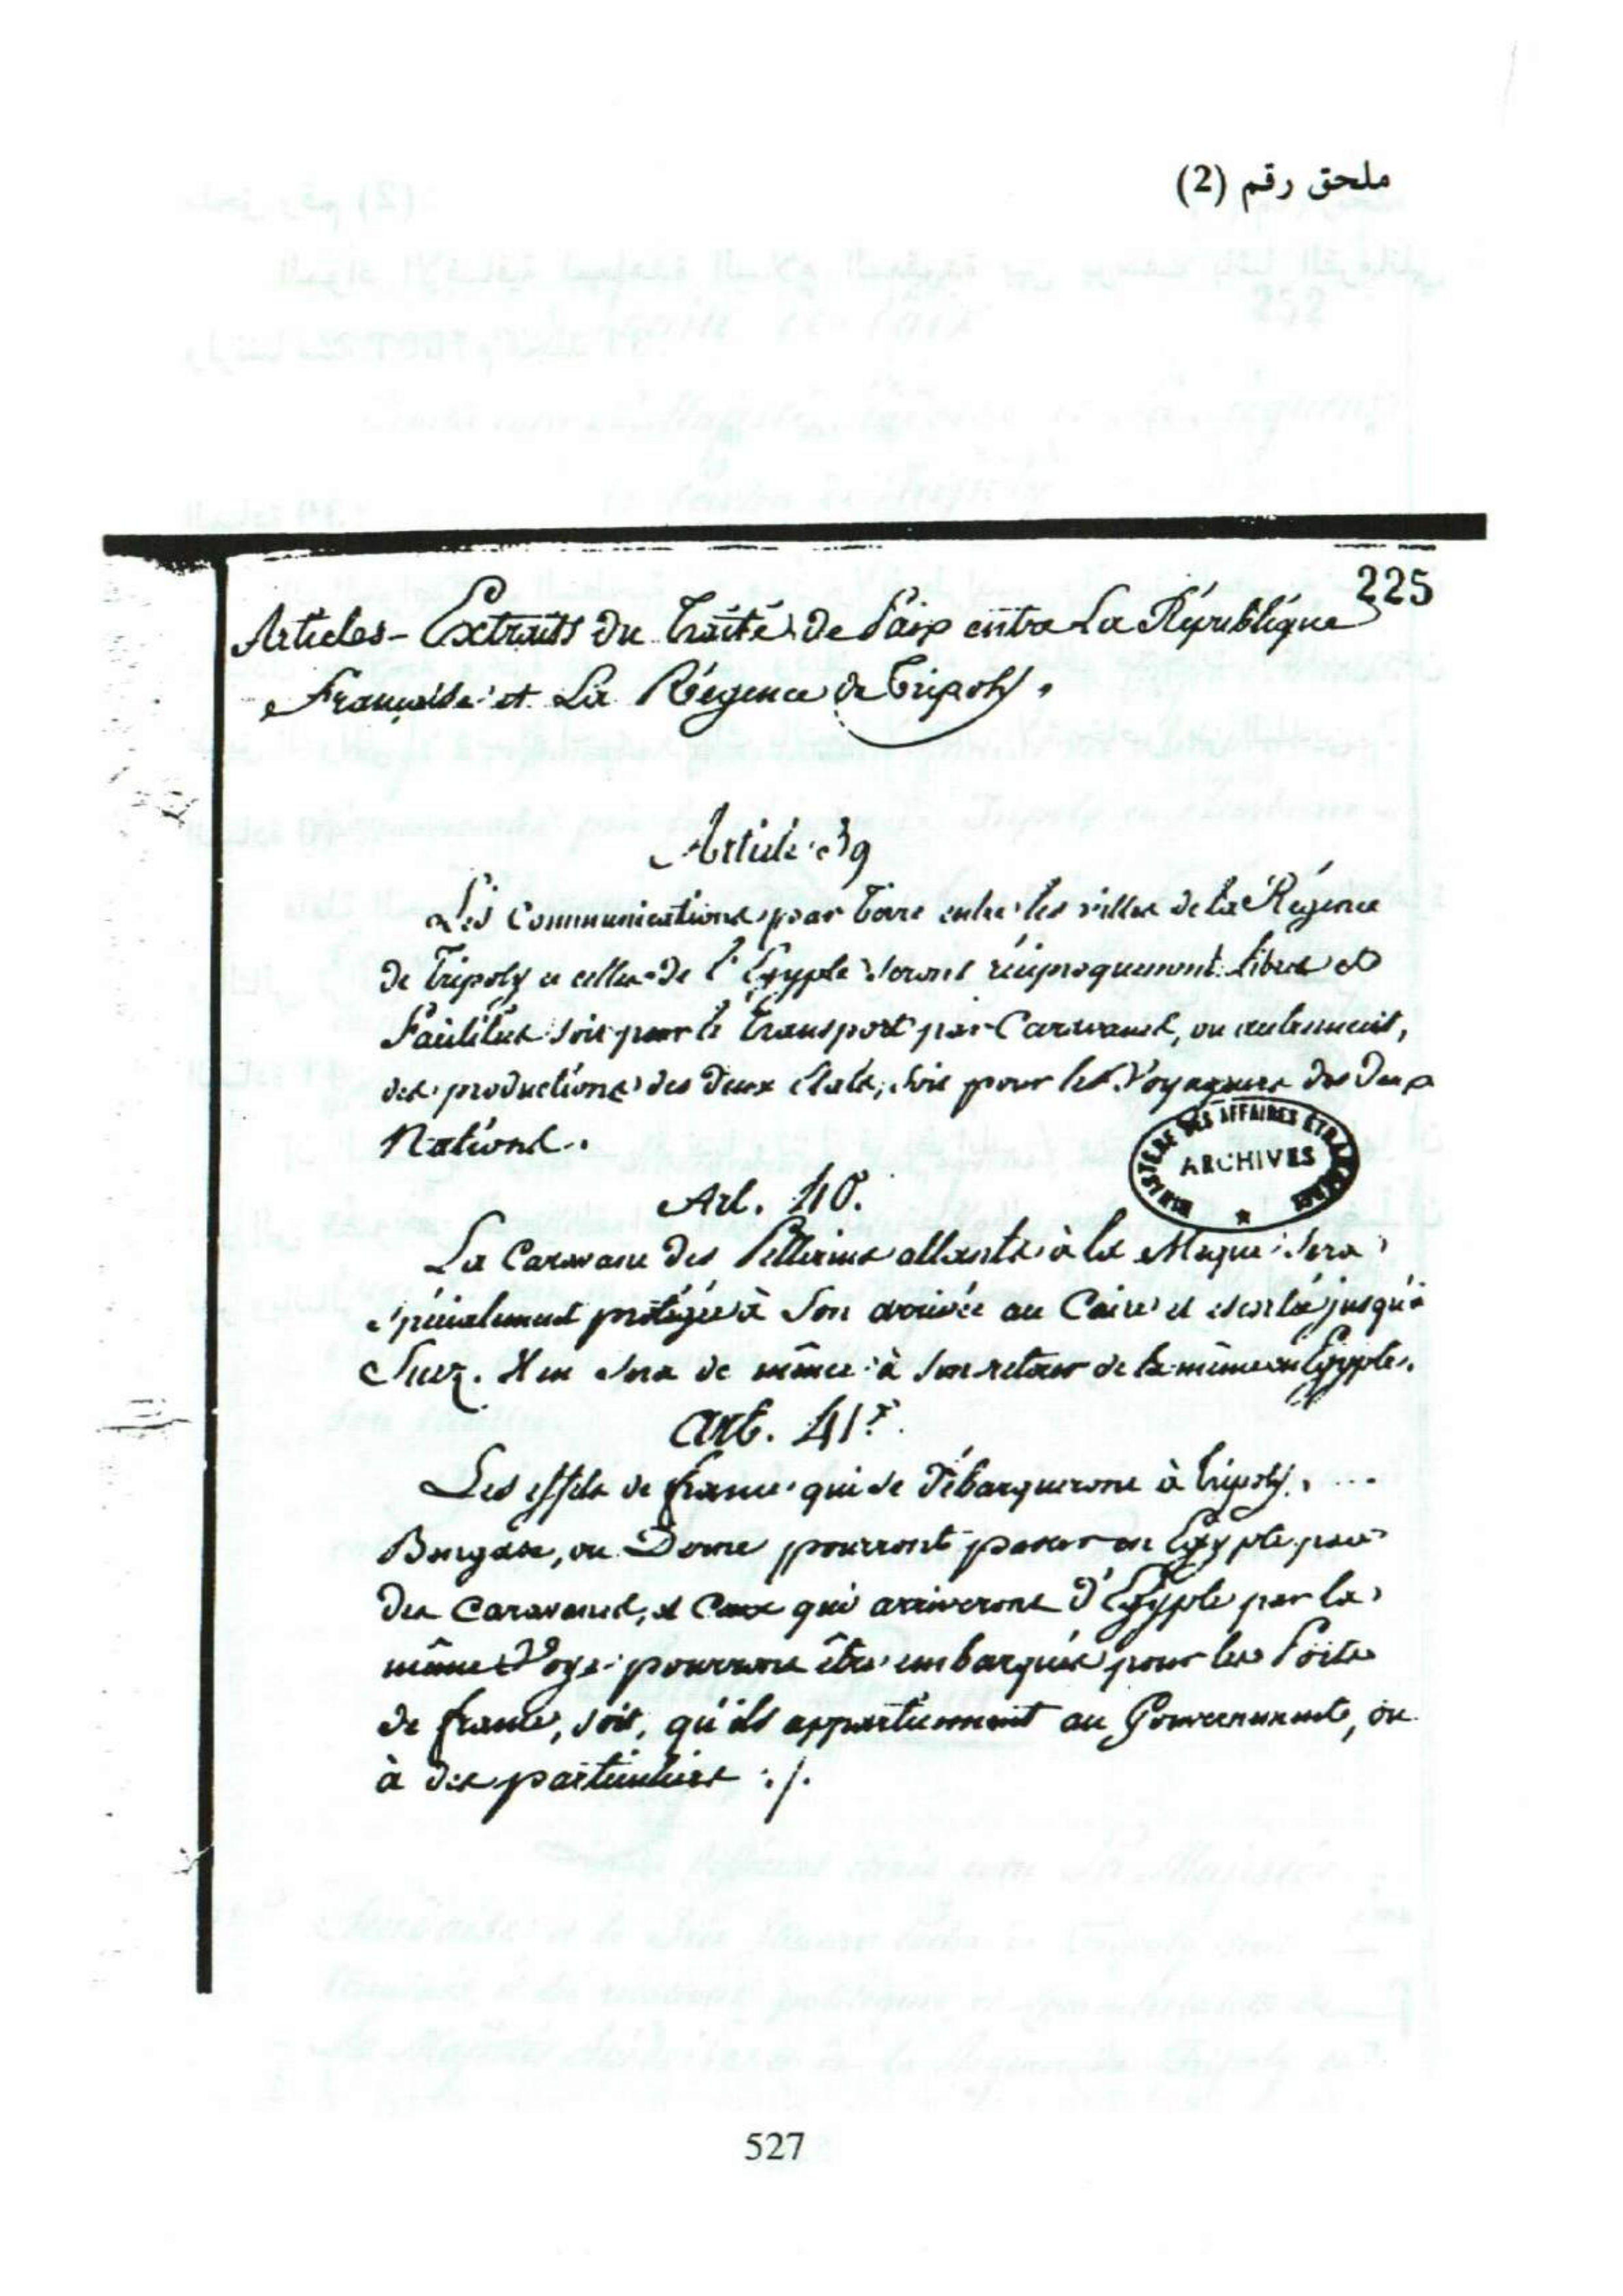 ملحق رقم (2)
225
Articles - Extraits du Traité de Paix entre La République
Française et La Régence de Tripoly.
Article 39
Les Communications par terre entre les villes de la Régence
de Tripoly et celles de l'Egypte seront réciproquement libres et
facilités soit pour le transport par Caravanes, ou autrement,
des productions des deux états, soit pour les Voyageurs des deux
Nations.
MINISTERE DES AFFAIRES ETRANGERES
ARCHIVES
Art. 40.
La Caravane des Pellerins allants à la Meque sera
spécialement protégée à son arrivée au Caire et escortée jusqu'à
Suez. Il en sera de même à son retour de la même en Egypte.
Art. 41.
Les effets de france qui se débarqueront à Tripoly, ...
Bengase, ou Derne pourront passer en Egypte par
des Caravanes, et Ceux qui arriveront d'Egypte par la
même Voye pourront être embarqués pour les Ports
de france, soit, qu'ils appartiennent au Gouvernement, ou
à des particuliers ./.
527